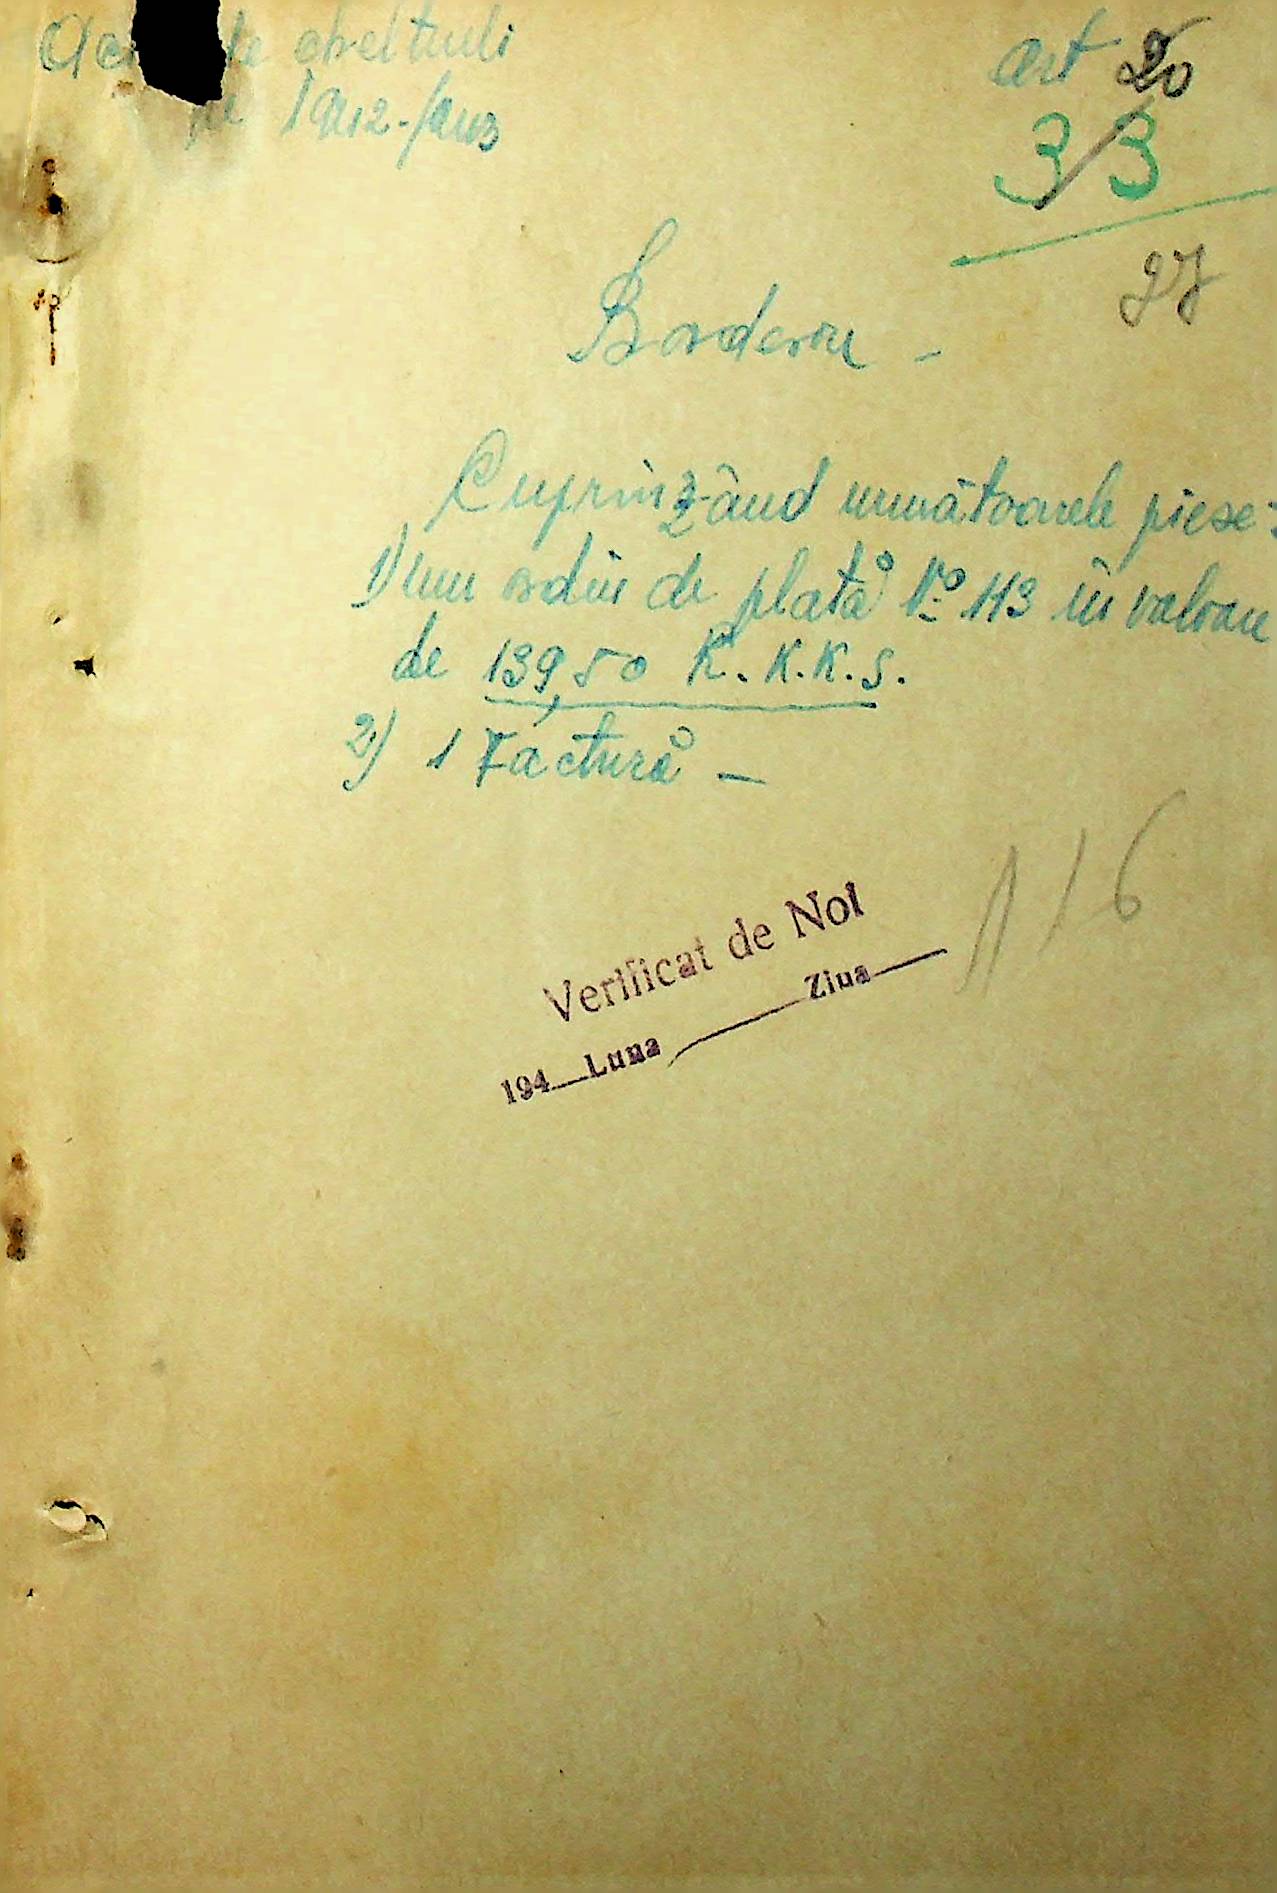 de cheltueli
pe 1942-1943
art 20
33
27
Borderou -
Cuprinzând următoarele piese:
1) Unu ordin de plată No 113 în valoare
de 139,50 R.K.K.S.
2) 1 Factură -
Verificat de Noi
194__Luna____Ziua____